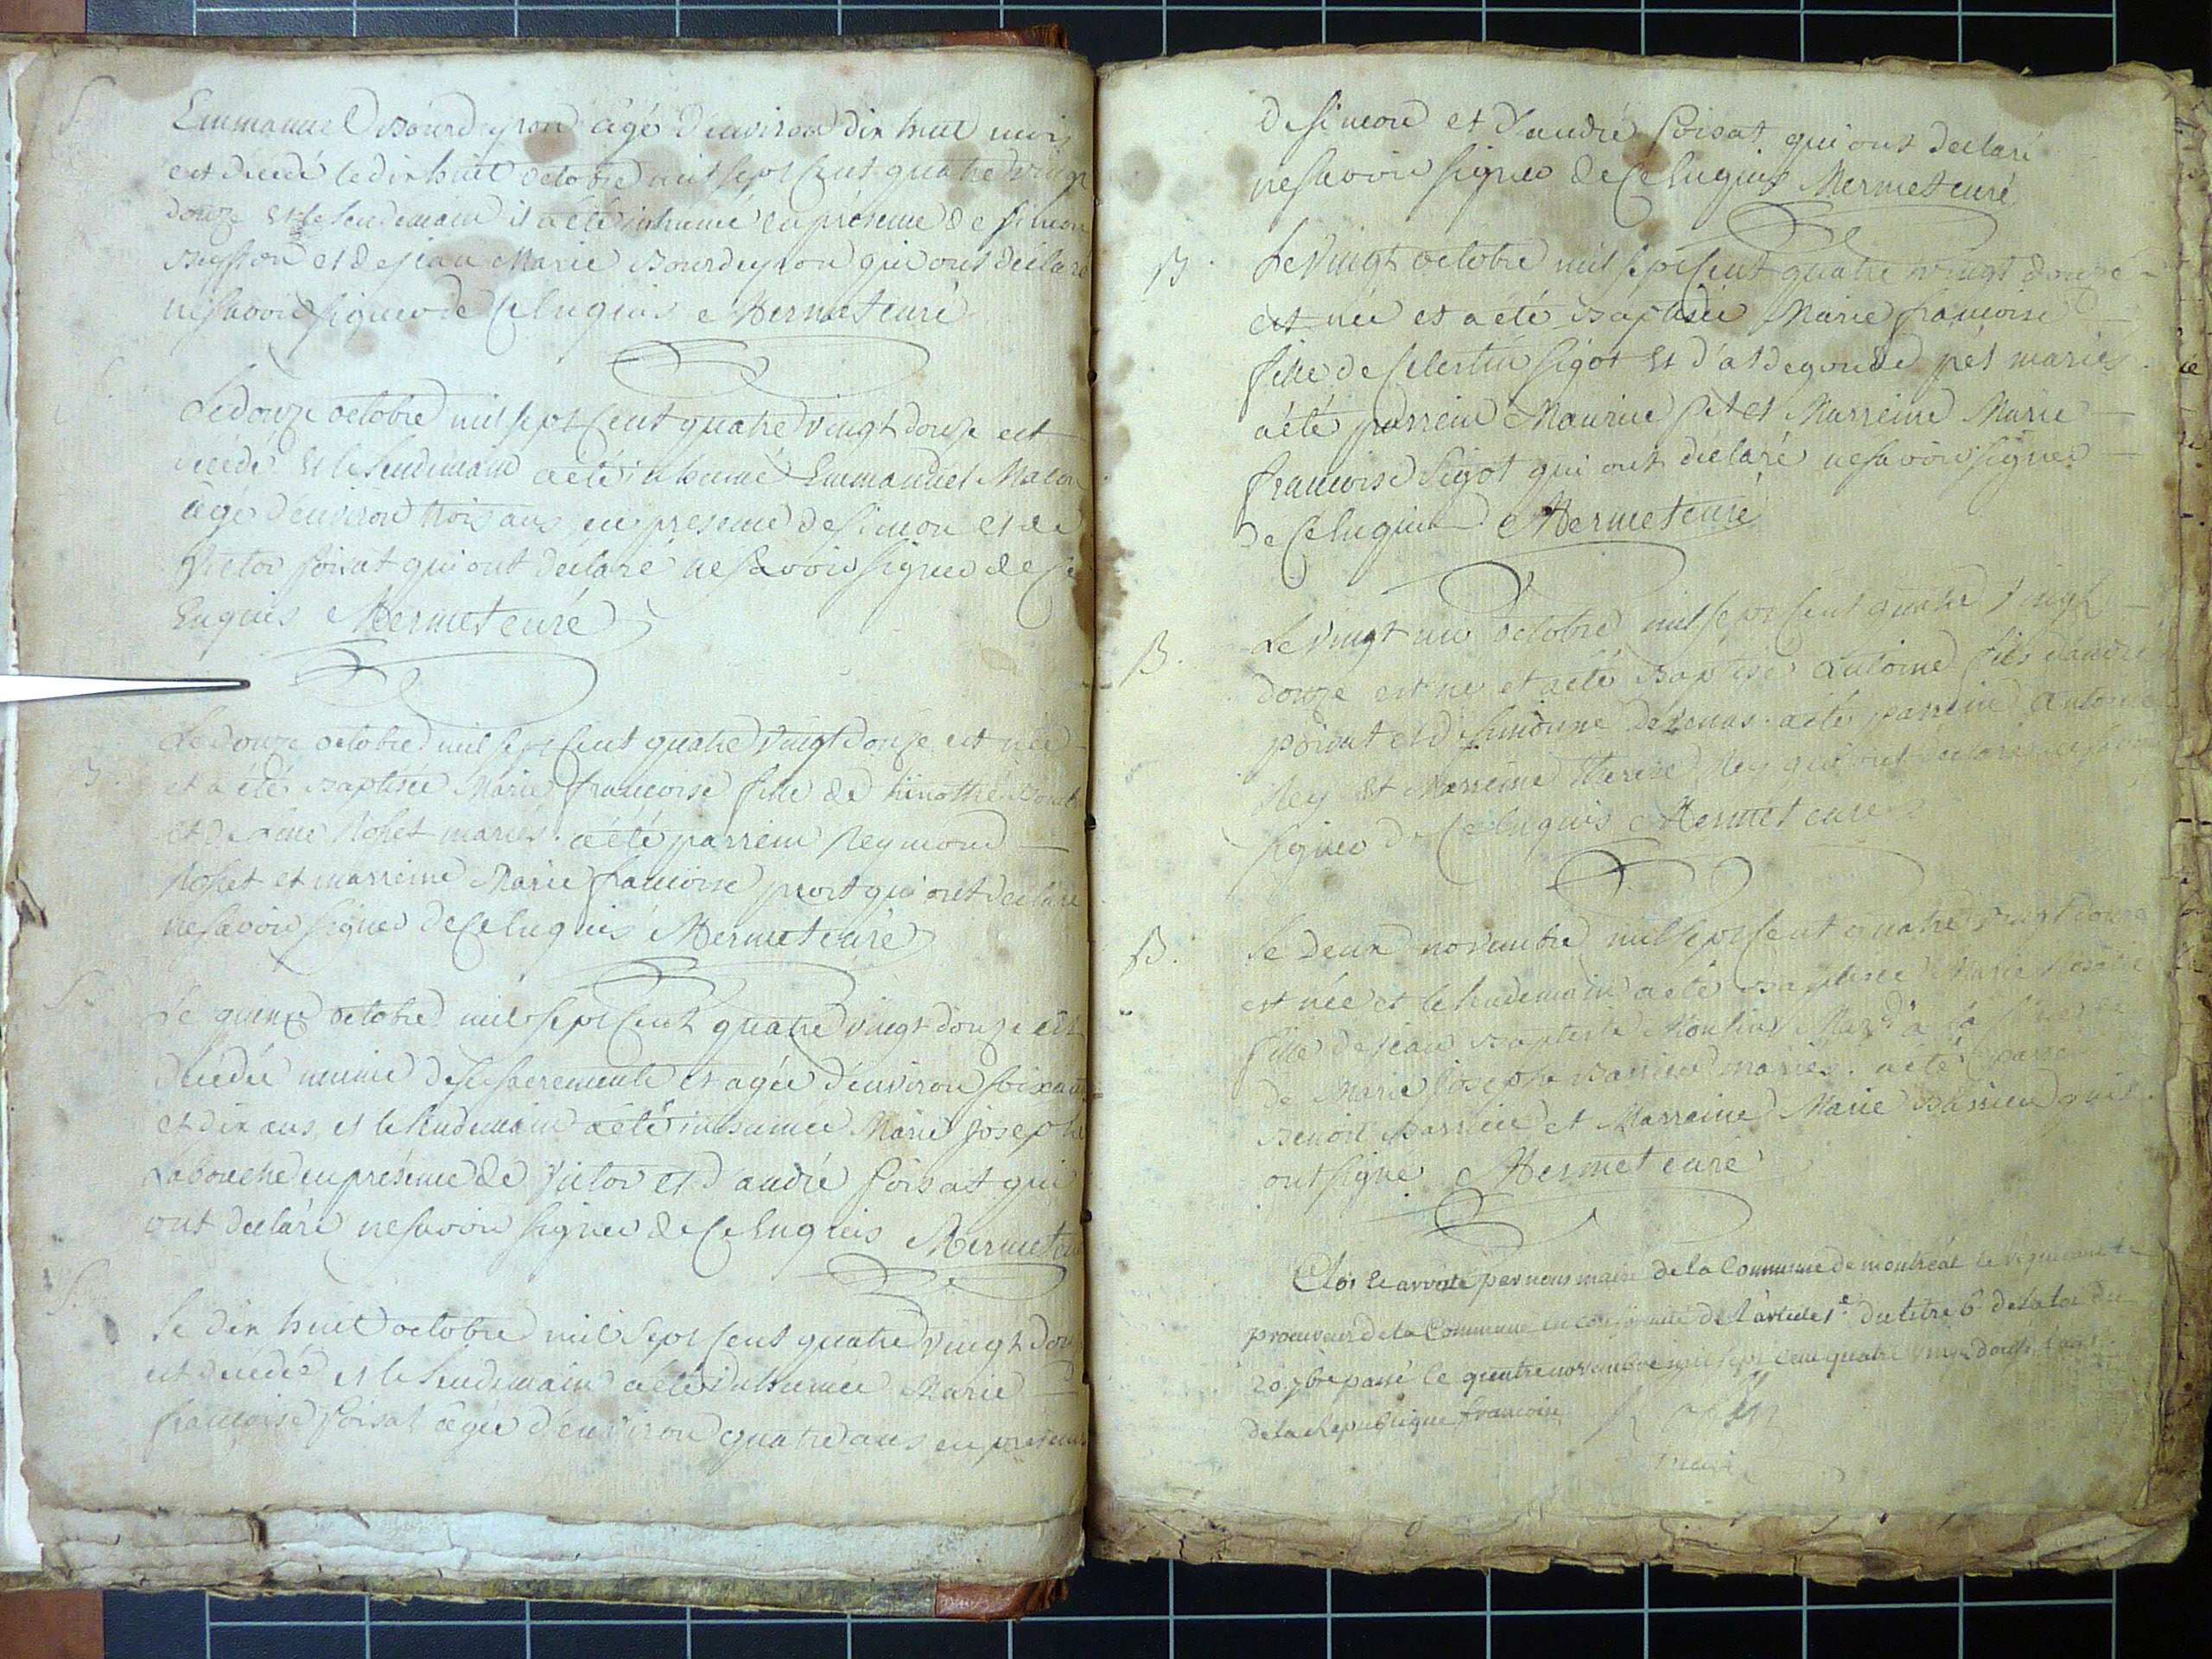 S.
Emmanuel Bourdeyron âgé d'environ dix huit mois
est décédé le dix huit octobre mil sept cent quatre vingt
douze et le lendemain il a été inhumé en présence de simon
et de jean Marie Bourdeyron qui ont déclaré
ne savoir signer de ce enquis Mermet curé
Le douze octobre mil sept cent quatre vingt douze est
décédé et le lendemain a été inhumé Emmanuel
âgé d'environ trois ans en présence de simon et de
Victor soisat qui ont déclaré ne savoir signer de ce
Enquis Mermet curé
B.
Le douze octobre mil sept cent quatre vingt douze est née
et a été Baptisée Marie francoise fille de
et de Rohet mariés. a été parrein Reymond
Rohet et marreine Marie francoise prost qui ont déclaré
ne savoir signer de ce enquis Mermet curé
S.
Le quinze octobre mil sept cent quatre vingt douze est
décédée munie de ses sacrements et agée d'environ soixante
et dix ans, et le lendemain a été inhumée Marie josephe
Labouche en présence de Victor et d'andré soisat qui
ont déclaré ne savoir signer de ce Enquis Mermet
S.
Le dix huit octobre mil sept cent quatre vingt douze
est décédée et le lendemain a été inhumée Marie
francoise soisat âgée d'environ quatre ans en présence
de simon et d'andré soisat qui ont déclaré
ne savoir signer de ce enquis Mermet curé
B.
Le Vingt octobre mil sept cent quatre vingt douze
est née et a été Baptisée Marie francoise
fille de Celestin sigot et d'aldegonde pet mariés
a été parrein Maurice pet et Marreine Marie
francoise sigot qui ont déclaré ne savoir signer
de ce enquis Mermet curé
B.
Le Vingt un octobre mil sept cent quatre vingt
douze est né et a été Baptisé Antoine fils d'andré
et de a été parrein Antoine
Rey et Marreine Therese Rey qui ont déclaré ne savoir
signer de ce enquis Mermet curé
B.
Le deux novembre mil sept cent quatre vingt douze
est née et le lendemain a été Baptisée Marie Rosalie
fille de jean Baptiste Moulins
de Marie Josephe Barrieu mariés. a été
Benoit Barrieu et Marreine Marie Barrieu qui
ont signé Mermet curé
Clos et arrêté par nous maire de la Commune de montréal le
procureur de la Commune en conformité de l'article 1er du titre 6 de la loi du
20 7bre passé le quatre novembre mil sept cent quatre vingt douze
de la Republique francoise
maire